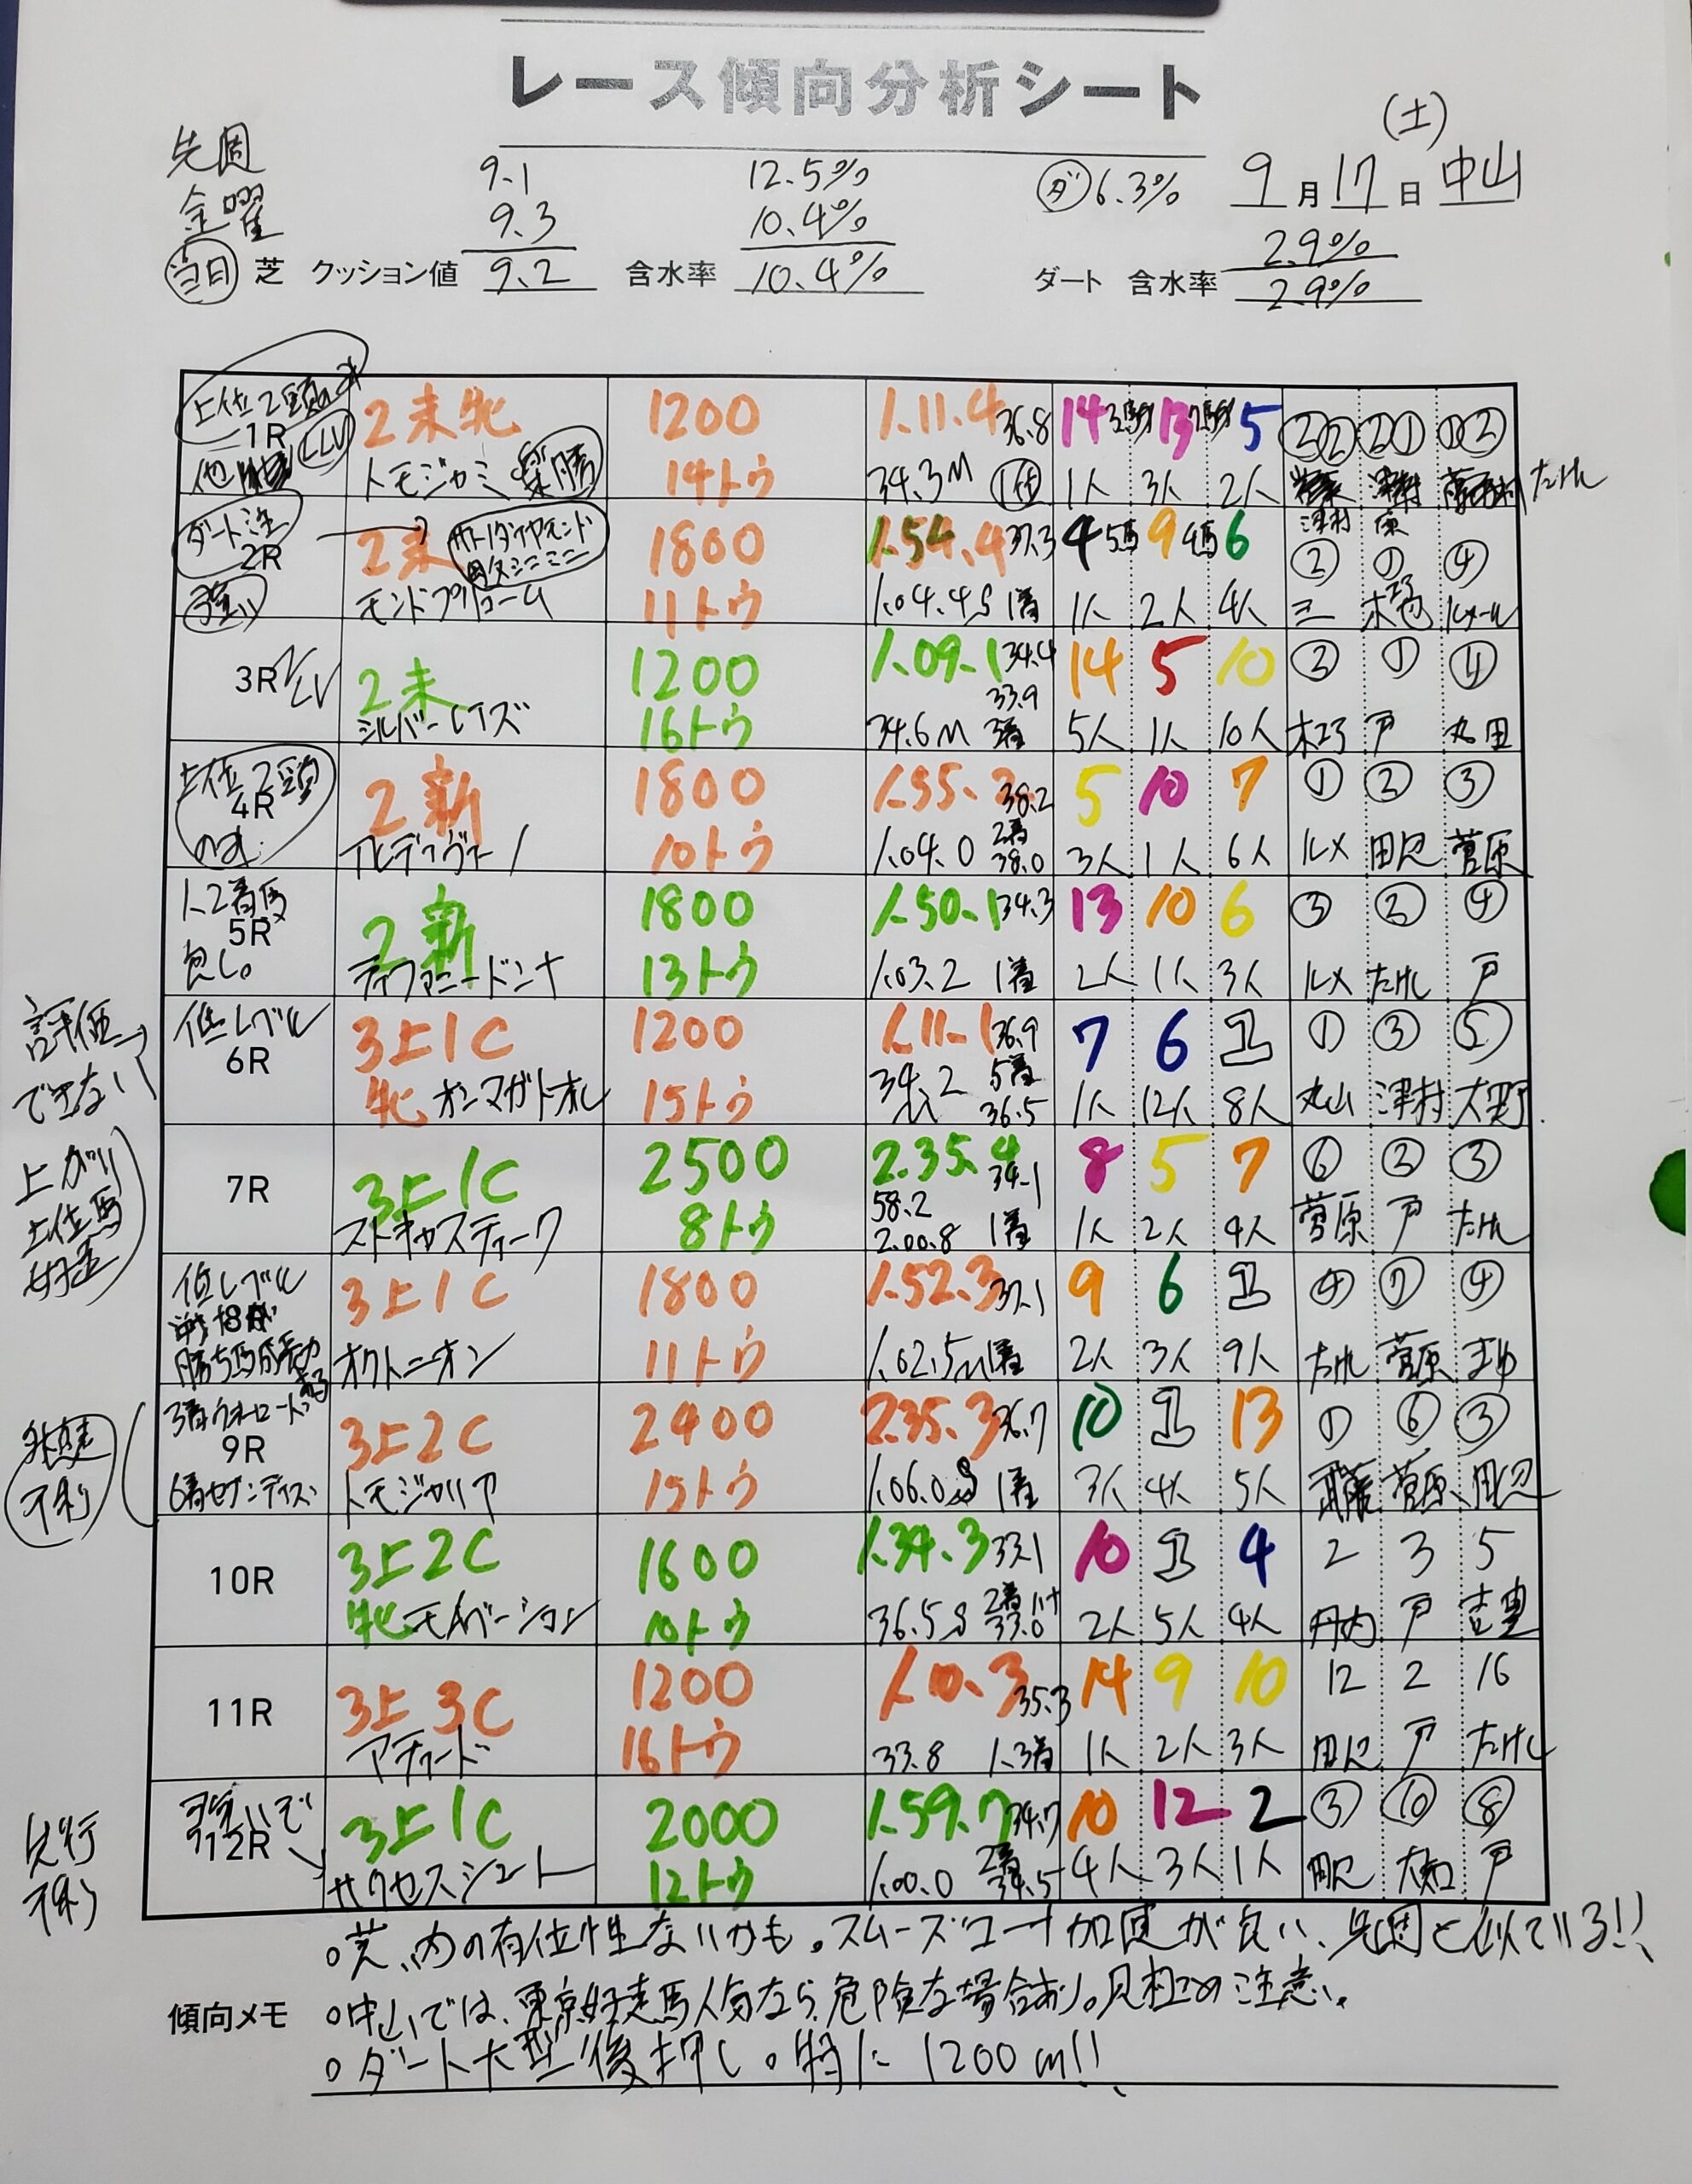 レース傾向分析シート
(土)
先週 9.1 12.5% ダ 6.3% 9月17日 中山
金曜 9.3 10.4% 2.9%
当日 芝 クッション値 9.2 含水率 10.4% ダート 含水率 2.9%
上位2頭のみ
1R LLV 2未牝 1200 1.11.4 36.8 14 13 5 ②② ②① ①②
トモジャミ 楽勝 14トウ 34.3M 1人 3人 2人 たけし
ダート注 津村 原
2R 2未 サトノダイヤモンド 1800 1.54.4 37.3 4 5馬 9 4馬 6 ② ① ④
強い モンドプリューム 11トウ 1.04.4S 1着 1人 2人 4人 三 木 ルメール
3R 2未 1200 1.09.1 34.4 14 5 10 ③ ① ④
33.9
シルバーレイズ 16トウ 34.6M 3着 5人 1人 10人 戸 丸田
上位2頭
4R 2新 1800 1.55. 38.2 5 10 7 ① ② ③
のみ 10トウ 1.04.0 2着 38.0 3人 1人 6人 ルメ 田辺 菅原
1、2着馬
5R 2新 1800 1.50.1 34.3 13 10 6 ③ ② ④
良し。 ティファニードンナ 13トウ 1.03.2 1着 2人 1人 3人 ルメ たけし 戸
評価できない
低レベル
6R 3上1C 1200 1.11.1 36.9 7 6 1 ① ③ ⑤
牝 オンマガトオル 15トウ 34.2 5着 36.5 1人 12人 8人 丸山 津村 大野
上がり上位馬好走
7R 3上1C 2500 2.35.4 34.1 8 5 7 ⑥ ② ③
58.2
ストキャスティーク 8トウ 2.00.8 1着 1人 2人 4人 菅原 戸 たけし
低レベル
3上1C 1800 1.52.3 37.1 9 6 1 ④ ⑦ ④
勝ち馬 オクトニオン 11トウ 1.02.5M 1着 2人 3人 9人 たけし 菅原
3着ウオーロード
9R 3上2C 2400 2.35.3 36.7 10 1 13 ① ⑥ ③
6着セブンデイズ トモジャリア 15トウ 1.06.0S 1着 3人 4人 5人 武藤 菅原 田辺
不利
10R 3上2C 1600 1.34.3 33.1 10 1 4 2 3 5
牝 モイベーション 10トウ 36.5S 2着 33.0 2人 5人 4人 丹内 戸 吉豊
11R 3上3C 1200 1.10.3 35.3 14 9 10 12 2 16
アティード 16トウ 33.8 1、3着 1人 2人 3人 田辺 戸 たけし
先行不利
強いぞ
12R 3上1C 2000 1.59.7 34.7 10 12 2 ③ ⑩ ⑧
サクセスシュート 12トウ 1.00.0 2着 34.5 4人 3人 1人 田辺 大知 戸
○芝、内の有位性ないかも。スムーズコーナー加速が良い、先週と似ている!!
傾向メモ ○中山では、東京好走馬人気なら危険な場合あり。見極め注意。
○ダート大型後押し。特に1200m!!